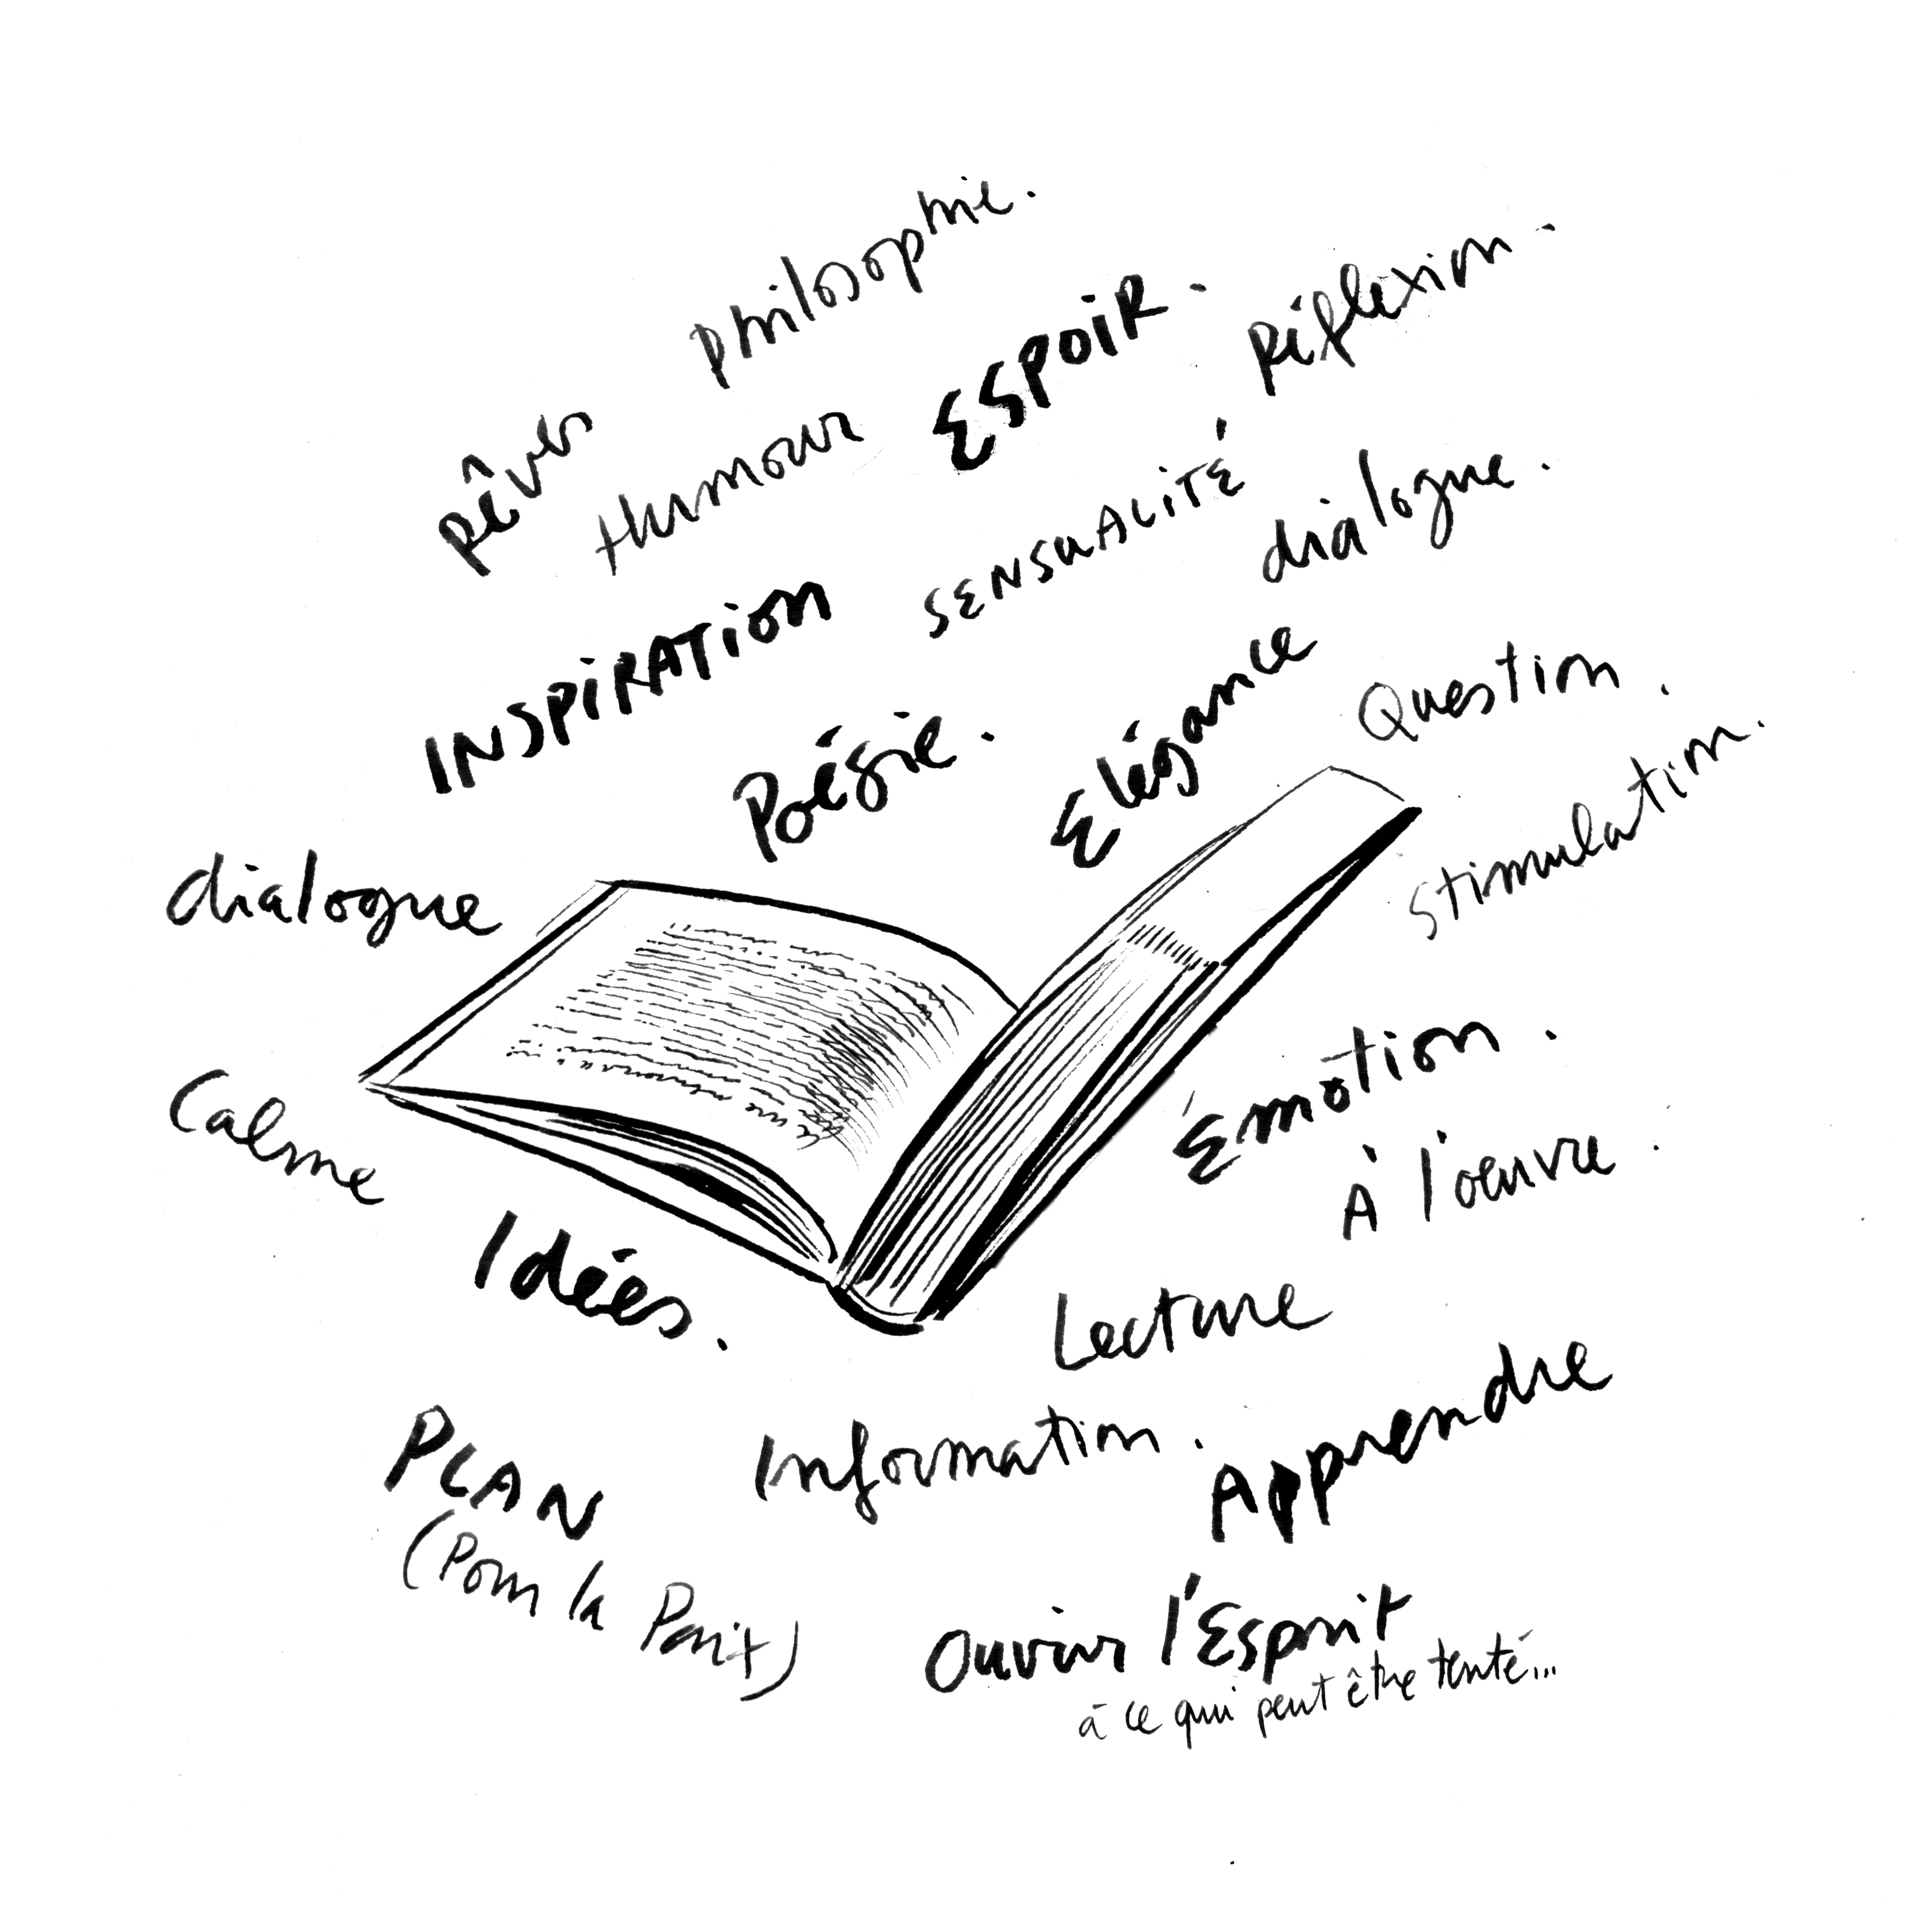 philosophie.
Rêves
Humour
ESPOIR.
Réflexion.
INSPIRATION
SENSUALITÉ
dialogue.
Poésie.
Elégance
Question.
Stimulation.
dialogue
Calme
Émotion.
À l'oeuvre.
Idées.
Lecture
PLAN
(Pour la Paix)
Information.
Apprendre
Ouvrir l'Esprit
à ce qui peut être tenté...